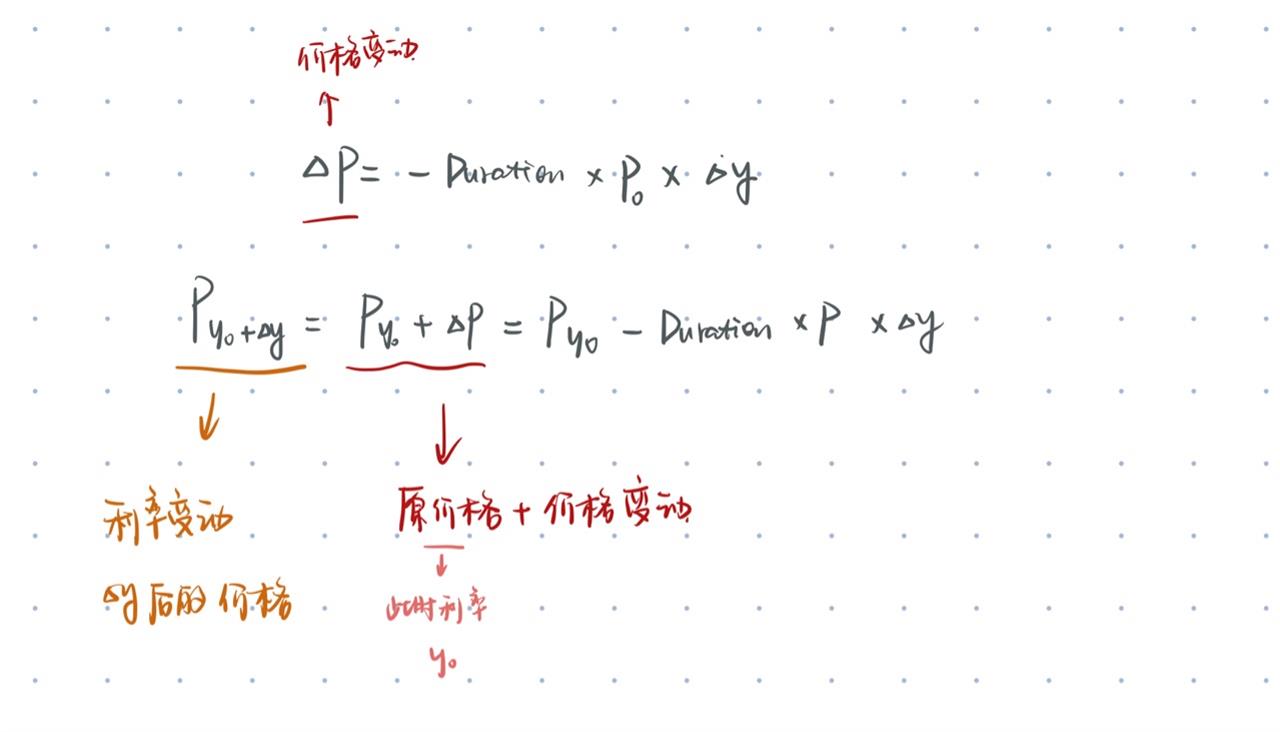 价格变动
↑
ΔP = - Duration × P₀ × Δy
P_{y₀+Δy} = P_{y₀} + ΔP = P_{y₀} - Duration × P × Δy
↓ ↓
利率变动 原价格 + 价格变动
↓
Δy后的价格 此时利率
y₀